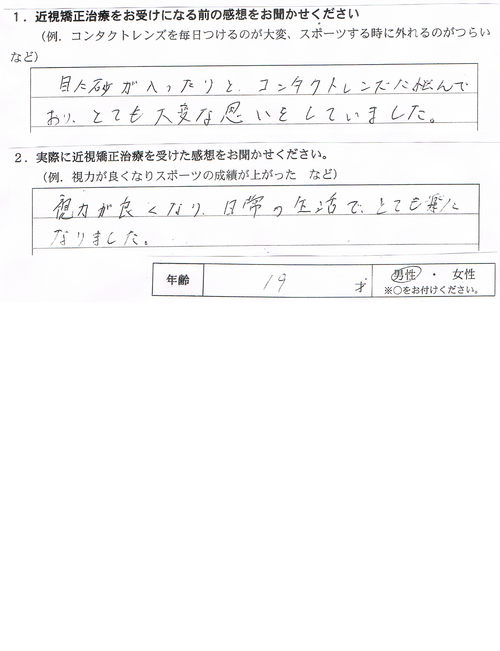 1．近視矯正治療をお受けになる前の感想をお聞かせください
（例．コンタクトレンズを毎日つけるのが大変、スポーツする時に外れるのがつらい
など）
目に砂が入ったりと、コンタクトレンズに悩んで
おり、とても大変な思いをしていました。
2．実際に近視矯正治療を受けた感想をお聞かせください。
（例．視力が良くなりスポーツの成績が上がった　など）
視力が良くなり、日常の生活で、とても楽に
なりました。
年齢 19 才 男性 ・ 女性
※○をお付けください。